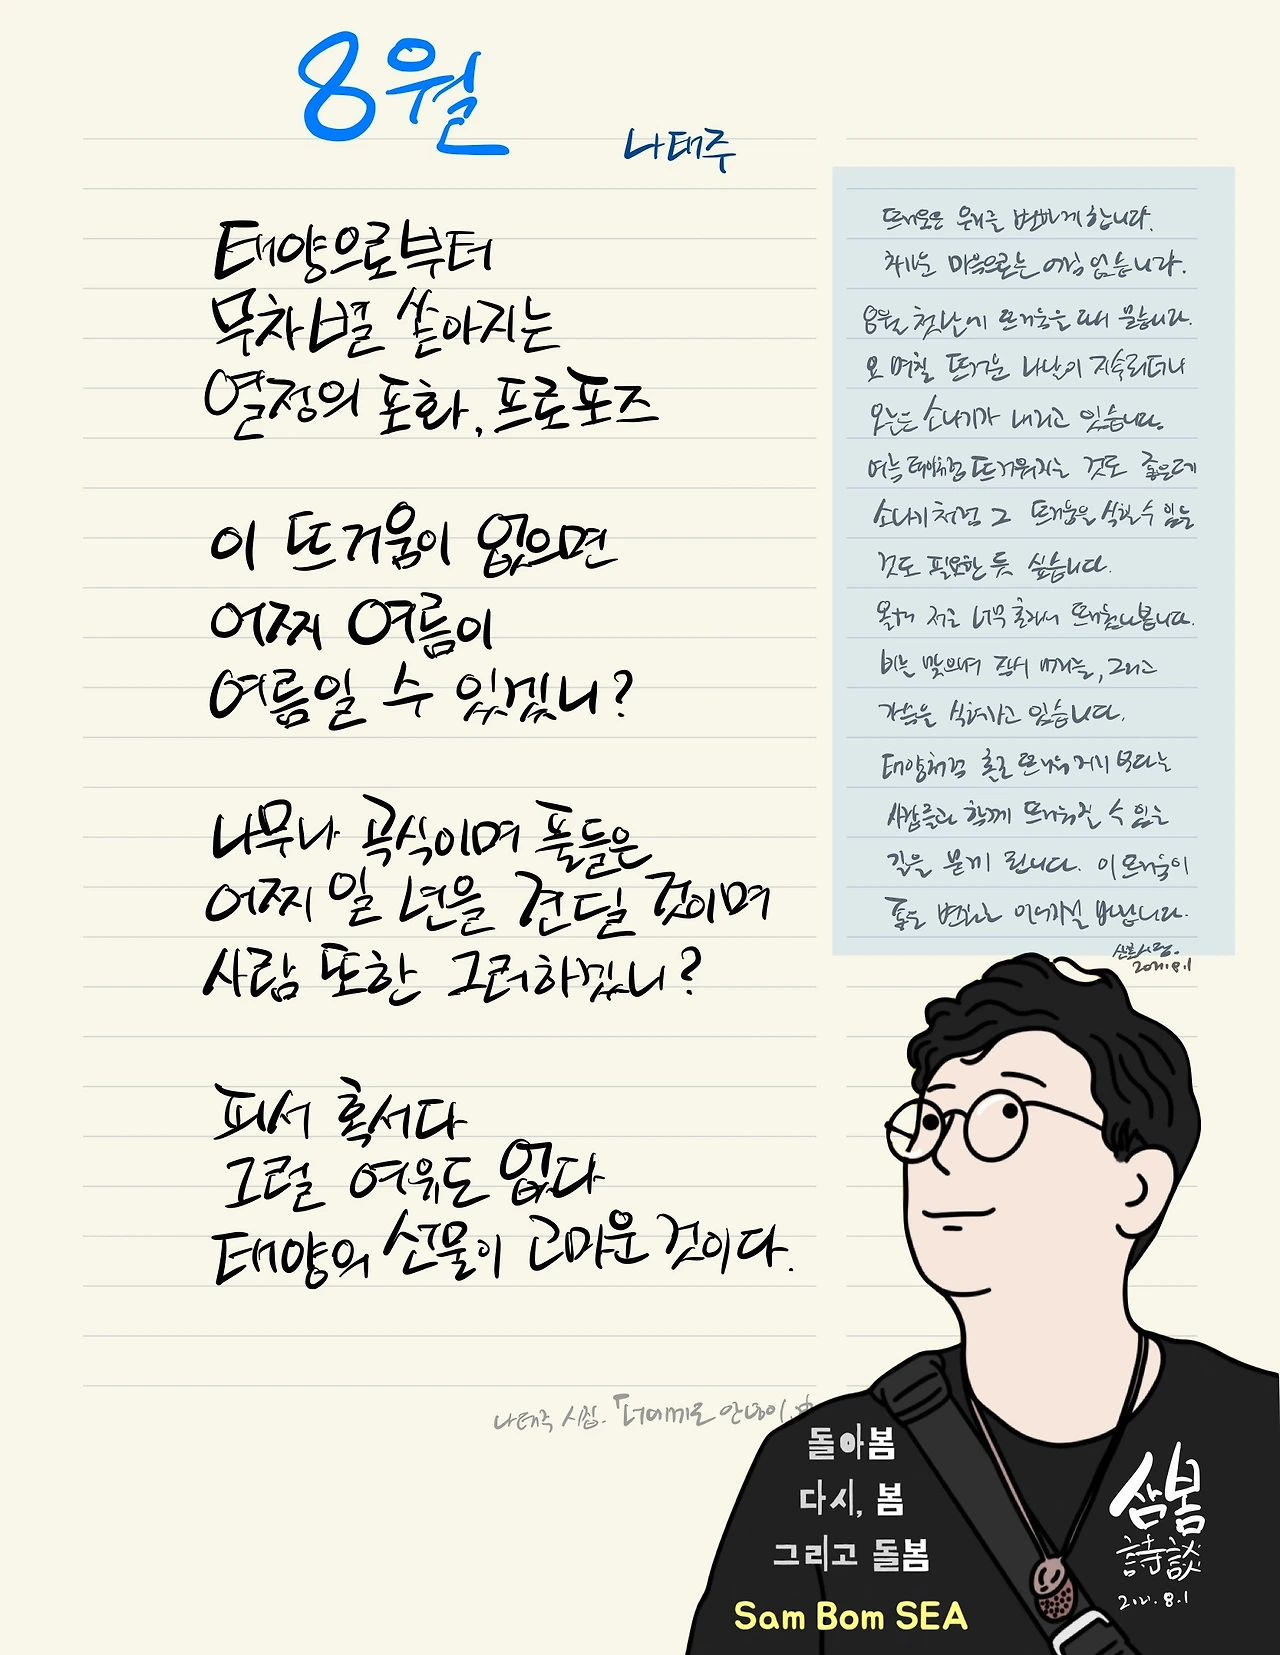 8월
나태주
태양으로부터
무차별 쏟아지는
열정의 포화, 프로포즈
이 뜨거움이 없으면
어찌 여름이
여름일 수 있겠니?
나무나 곡식이며 풀들은
어찌 일 년을 견딜 것이며
사람 또한 그러하겠니?
피서 혹서다
그럴 여유도 없다
태양의 선물이 고마운 것이다.
뜨거움은 변하게 합니다.
마음으로는 없습니다.
8월 첫날에 뜨거움을 다시 묻습니다.
요 며칠 뜨거운 나날이 지속되더니
오늘은 소나기가 내리고 있습니다.
여름 태양처럼 뜨거워지는 것도 좋은데
소나기처럼 그 뜨거움을 식힐 수 있는
것도 필요한 듯 싶습니다.
올해 저는 너무 홀로서 뜨거웠나 봅니다.
비를 맞으며 잠시 그리고
가슴을 식혀가고 있습니다.
태양처럼 홀로 뜨거워지기 보다는
사람들과 함께 뜨거워질 수 있는
길을 묻게 됩니다. 이 뜨거움이
좋은 변화로 이어가길 바랍니다.
2021.8.1
나태주 시집. 「너에게로 안녕이
돌아봄
다시, 봄
그리고 돌봄
Sam Bom SEA
삼봄
詩談
2021.8.1